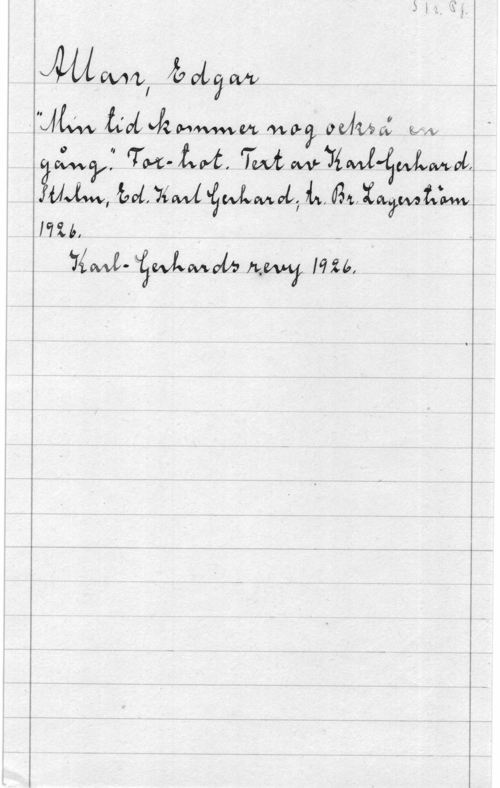 Allan, Edgar
"Min tid kommer nog också en
gång." Fox-trot. Text av Karl-Gerhard.
Sthlm, Ed. Karl Gerhard; tr. Br. Lagerström
1926.
Karl-Gerhards revy 1926.